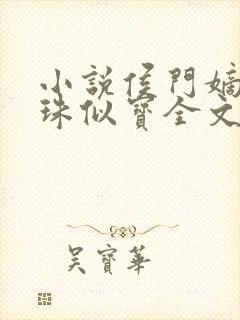 小說侯門嫡
珠似寶全文
吴寶華